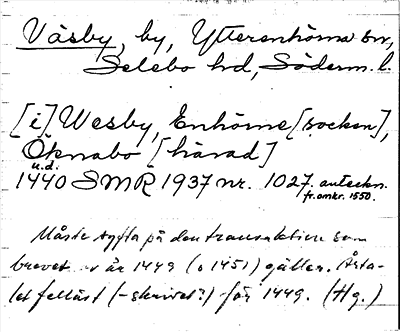 Väsby, by, Ytterenhörna sn,
Selebo hd, Söderm. l.
[i] Wesby, Enhörne [socken],
Öknabo [härad]
u.d.
1440 SMR 1937 nr. 1027. anteckn.
fr. omkr. 1550.
Måste syfta på den transaktion som
brevet av år 1449 (o 1451) gäller. Årta-
let felläst (-skrivet?) för 1449. (Hg.)